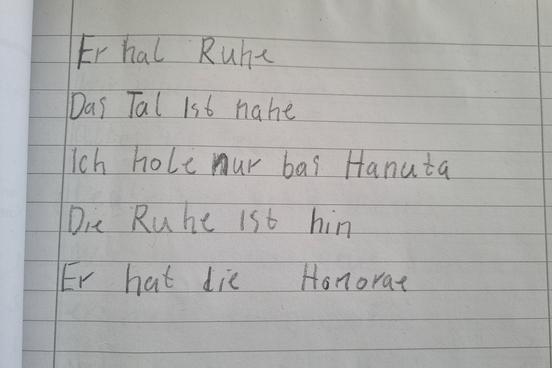 Er hal Ruhe
Das Tal ist nahe
Ich hole nur bas Hanuta
Die Ruhe ist hin
Er hat die Honorae